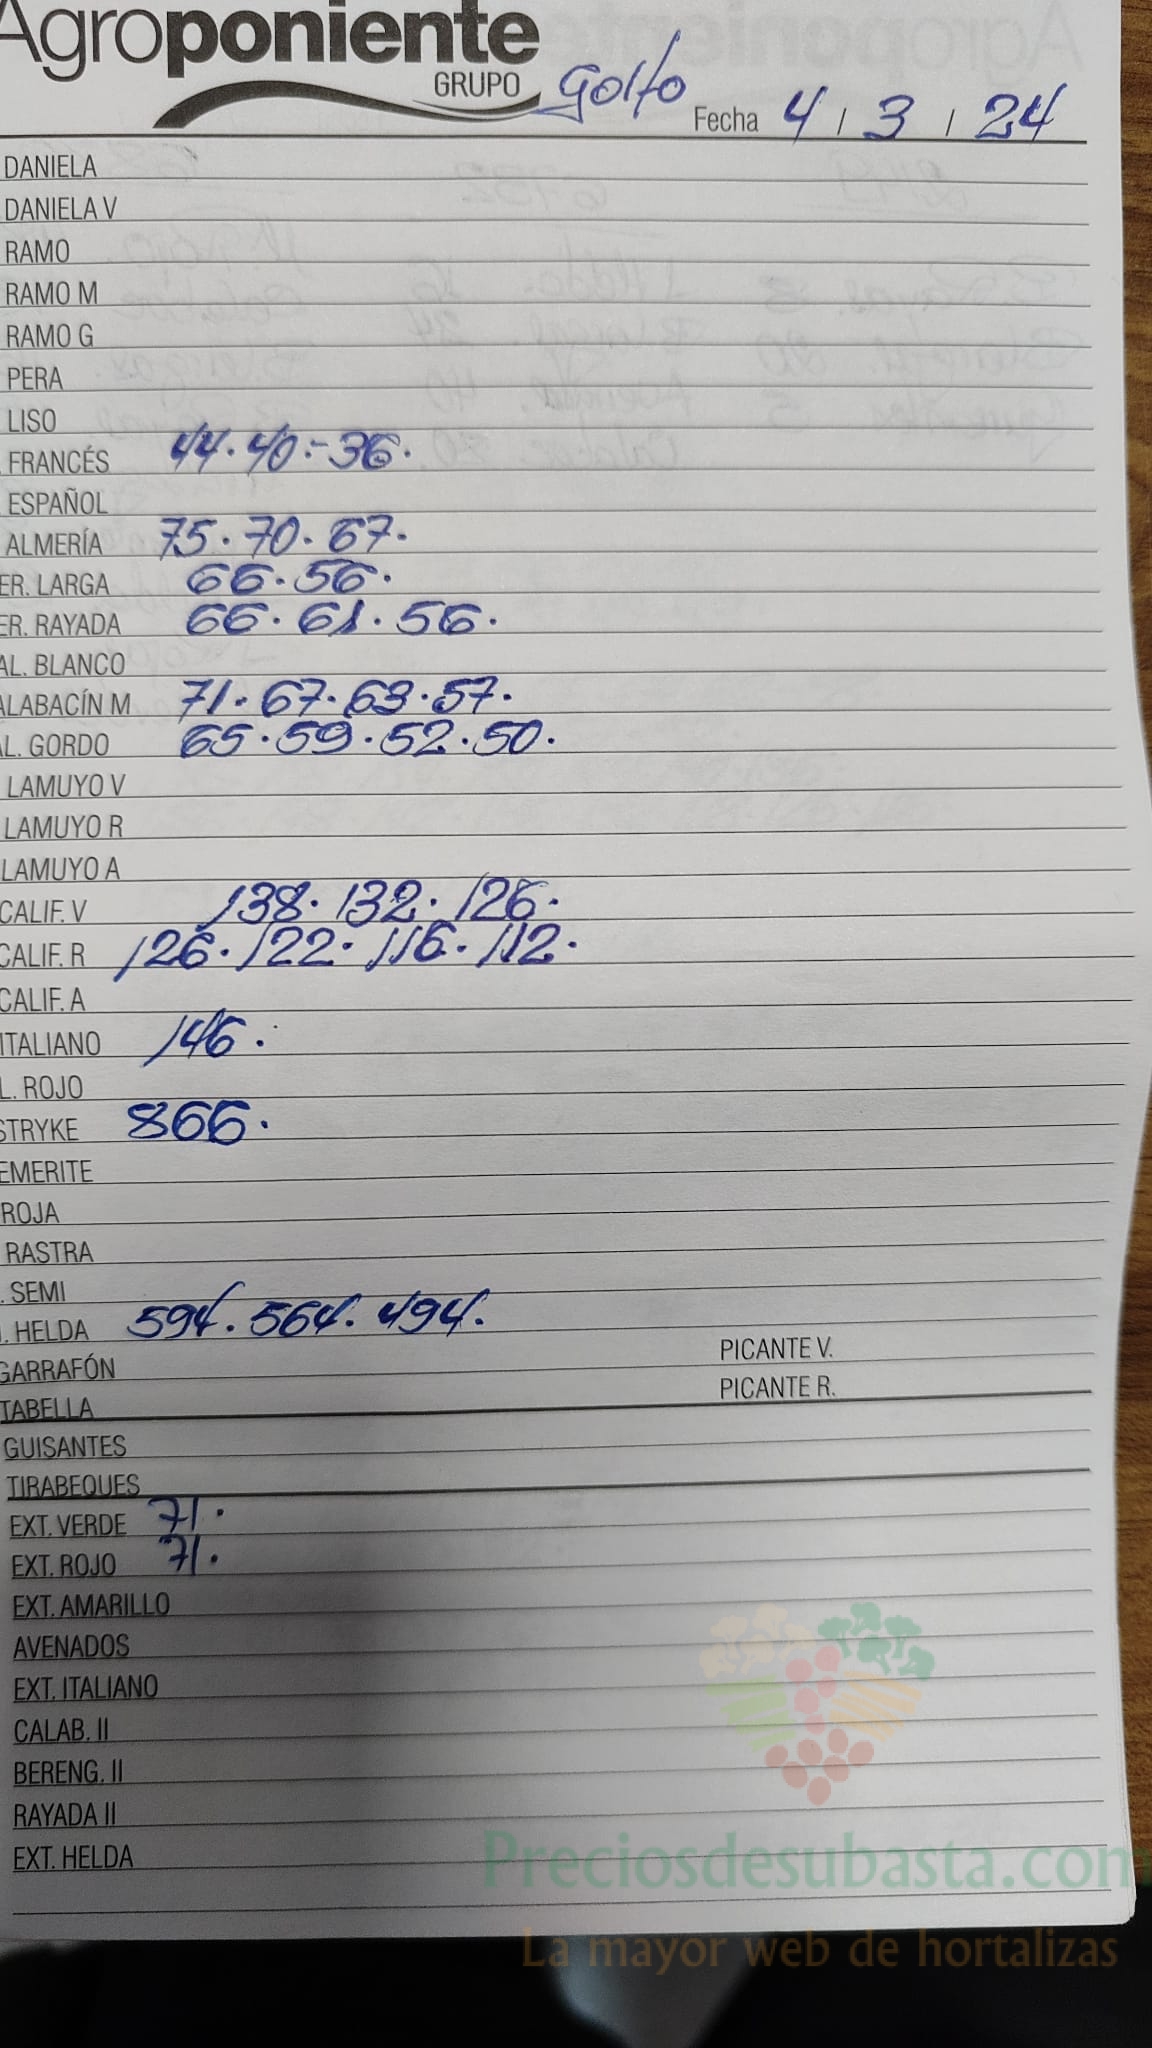 Agroponiente
GRUPO Golfo Fecha 4 / 3 / 24
DANIELA
DANIELA V
RAMO
RAMO M
RAMO G
PERA
LISO
FRANCÉS 44. 40.- 36.
ESPAÑOL
ALMERÍA 75. 70. 67.
ER. LARGA 66. 56.
ER. RAYADA 66. 61. 56.
AL. BLANCO
ALABACÍN M 71. 67. 63. 57.
AL. GORDO 65. 59. 52. 50.
LAMUYO V
LAMUYO R
LAMUYO A
CALIF. V 138. 132. 126.
CALIF. R 126. 122. 116. 112.
CALIF. A
ITALIANO 146.
L. ROJO
STRYKE 866.
EMERITE
ROJA
RASTRA
. SEMI
. HELDA 594. 564. 494.
GARRAFÓN PICANTE V.
TABELLA PICANTE R.
GUISANTES
TIRABEQUES
EXT. VERDE 71.
EXT. ROJO 71.
EXT. AMARILLO
AVENADOS
EXT. ITALIANO
CALAB. II
BERENG. II
RAYADA II
EXT. HELDA
Preciosdesubasta.com
La mayor web de hortalizas